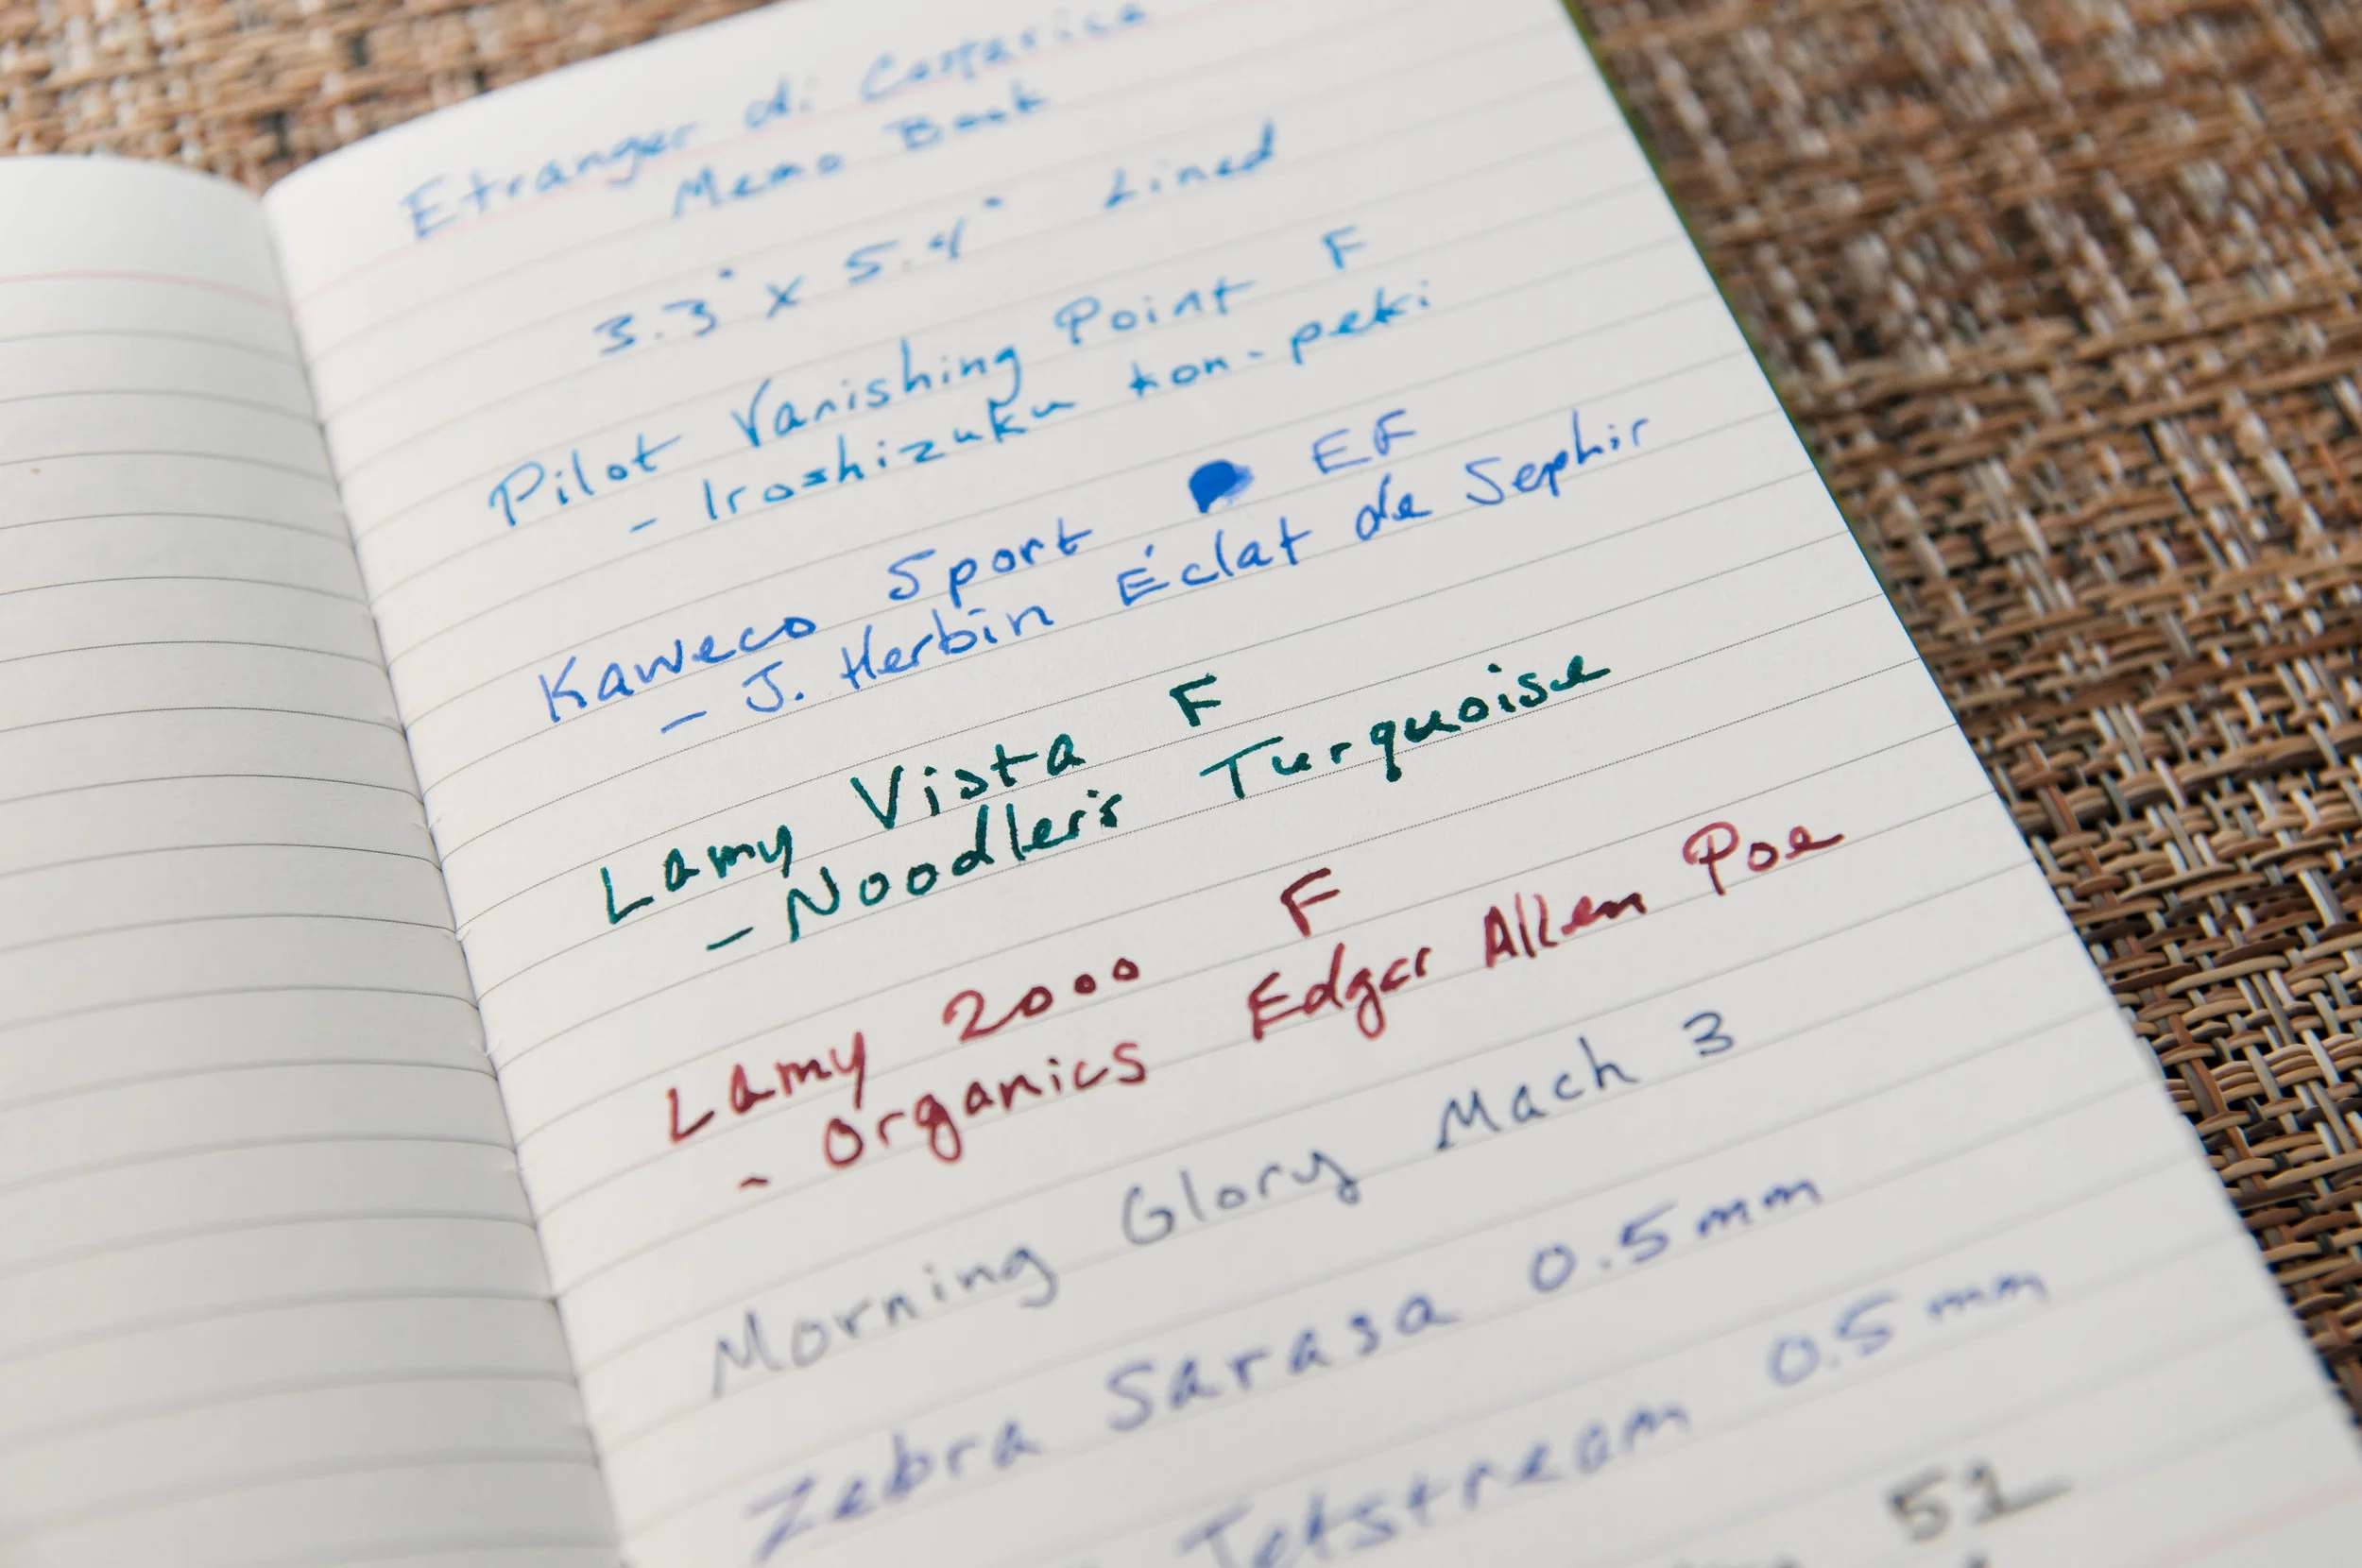 Etranger di Costarica
Memo Book
3.3" x 5.4" Lined
Pilot Vanishing Point F
- Iroshizuku kon-peki
Kaweco Sport EF
- J. Herbin Éclat de Sephir
Lamy Vista F
- Noodler's Turquoise
Lamy 2000 F
- Organics Edgar Allen Poe
Morning Glory Mach 3
Zebra Sarasa 0.5mm
Jetstream 0.5mm
51